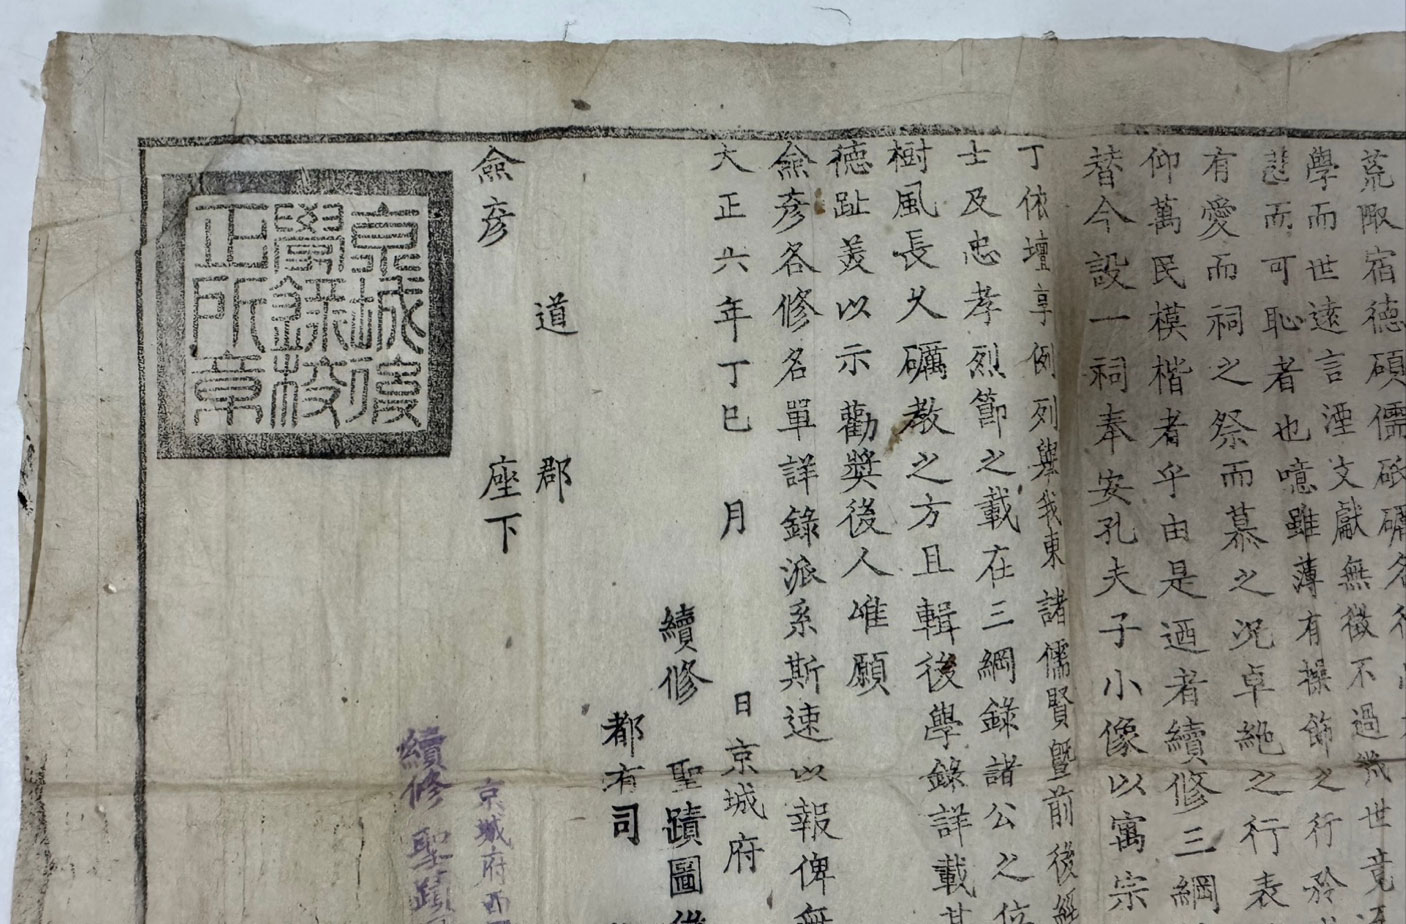 荒陬宿德碩儒砥礪名行
學而世遠言湮文獻無徵不過幾世竟
而可恥者也噫雖薄有操飾之行矜
有愛而祠之祭而慕之况卓絶之行表
仰萬民模楷者乎由是迺者續修三綱
替今設一祠奉安孔夫子小像以寓宗
丁依壇享例列擧我東諸儒賢曁前後經
士及忠孝烈節之載在三綱錄諸公之位
樹風長久礪教之方且輯後學錄詳載其
德趾美以示勸奬後人惟願
僉彦各修名單詳錄派系斯速以報俾無
大正六年丁巳 月 日京城府
續修 聖蹟圖
都有司
道 郡
僉彦 座下
京城府西
續修聖蹟
京城後
學錄校
正所章